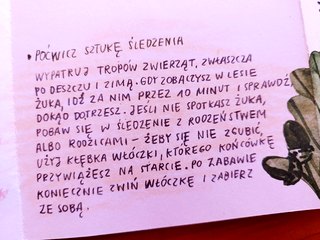 • POĆWICZ SZTUKĘ ŚLEDZENIA
WYPATRUJ TROPÓW ZWIERZĄT, ZWŁASZCZA
PO DESZCZU I ZIMĄ. GDY ZOBACZYSZ W LESIE
ŻUKA, IDŹ ZA NIM PRZEZ 10 MINUT I SPRAWDŹ,
DOKĄD DOTRZESZ. JEŚLI NIE SPOTKASZ ŻUKA,
POBAW SIĘ W ŚLEDZENIE Z RODZEŃSTWEM
ALBO RODZICAMI – ŻEBY SIĘ NIE ZGUBIĆ,
UŻYJ KŁĘBKA WŁÓCZKI, KTÓREGO KOŃCÓWKĘ
PRZYWIĄŻESZ NA STARCIE. PO ZABAWIE
KONIECZNIE ZWIŃ WŁÓCZKĘ I ZABIERZ
ZE SOBĄ.